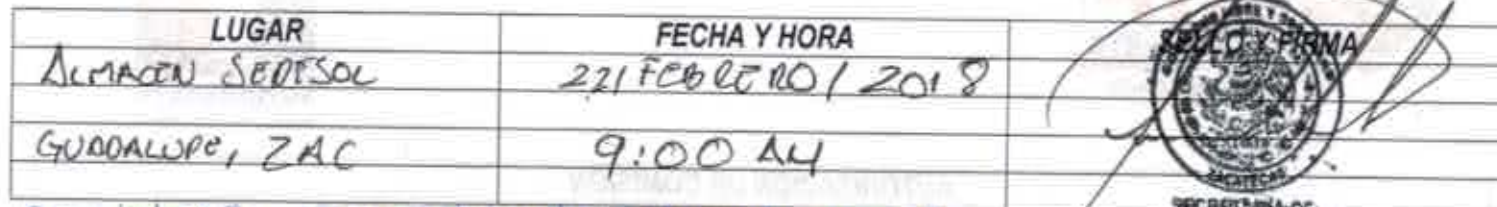 LUGAR FECHA Y HORA SELLO Y FIRMA
ALMACEN SEDESOL 22/FEBRERO/2018
GUADALUPE, ZAC 9:00 AM
ZACATECAS
SECRETARÍA DE